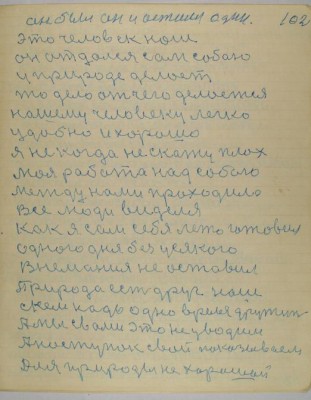 он были он и остался один. 102
Это человек наш
он отдался сам собою
у природе делает
то дело от чего делается
нашему человеку легко
удобно и хорошо
я не когда не скажу плох
моя работа над собою
между нами проходило
Все люди виделя
Как я сам себя лето готовил
одного дня без усякого
Внемания не оставил
Природа есть друг наш
с кем надо одно время дружит
А мы с вами это не уводим
А поступок свой показываем
Для природы не хороший